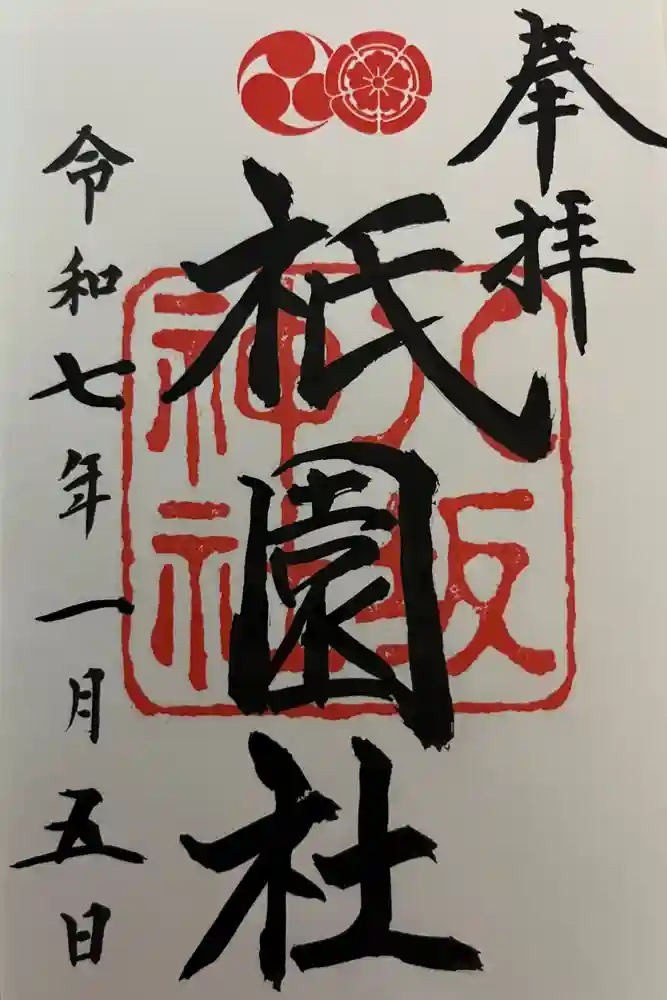 奉拝
八坂
神社
祇園社
令和七年一月五日